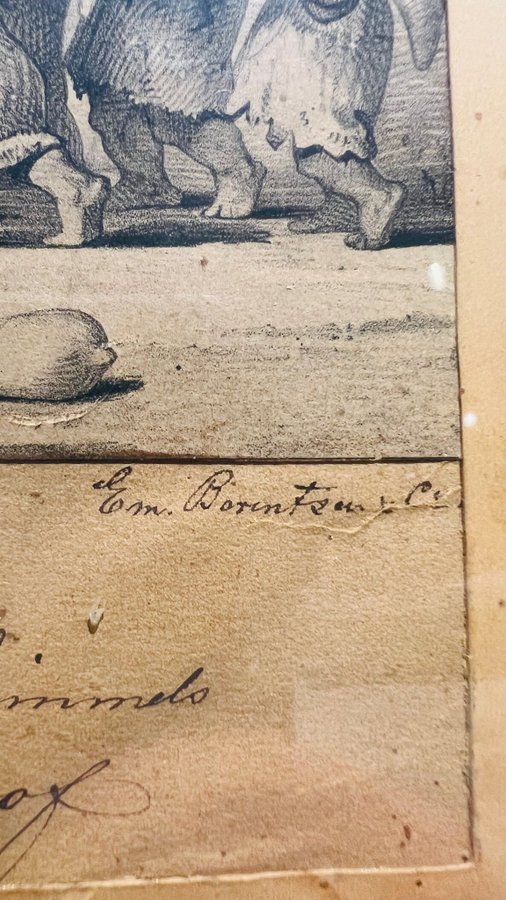 Em. Bærentzen & Co.
r.
immels
of